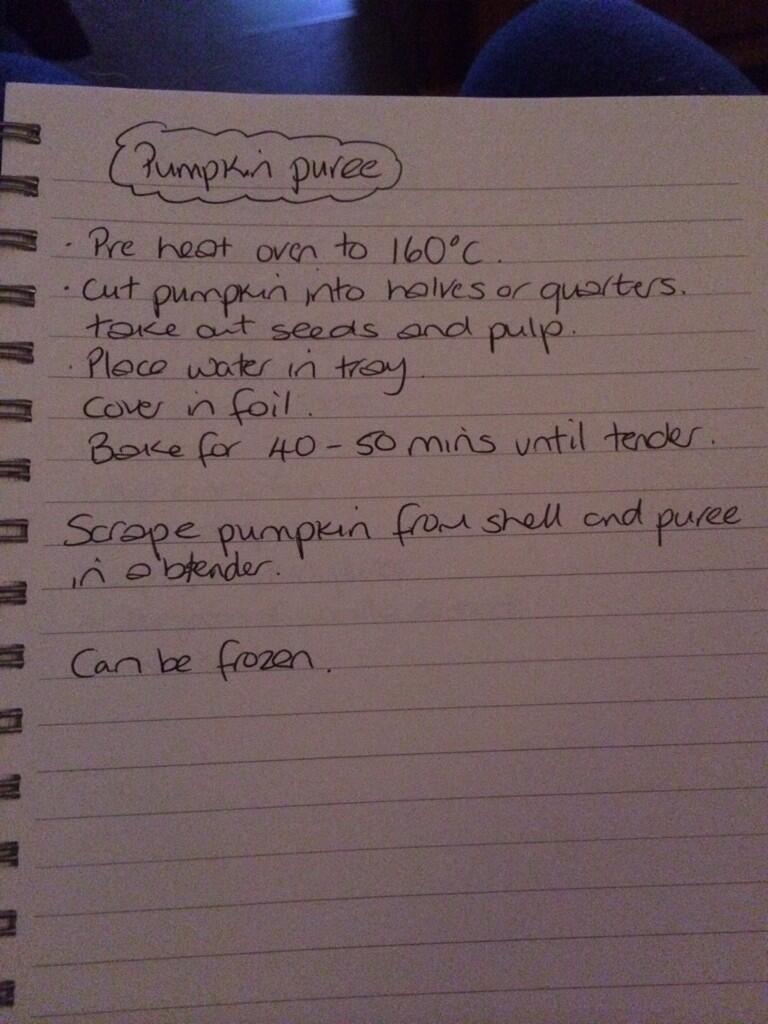 Pumpkin puree
· Pre heat oven to 160°C.
· Cut pumpkin into halves or quarters.
take out seeds and pulp.
· Place water in tray.
Cover in foil.
Bake for 40 - 50 mins until tender.
Scrape pumpkin from shell and puree
in a blender.
Can be frozen.